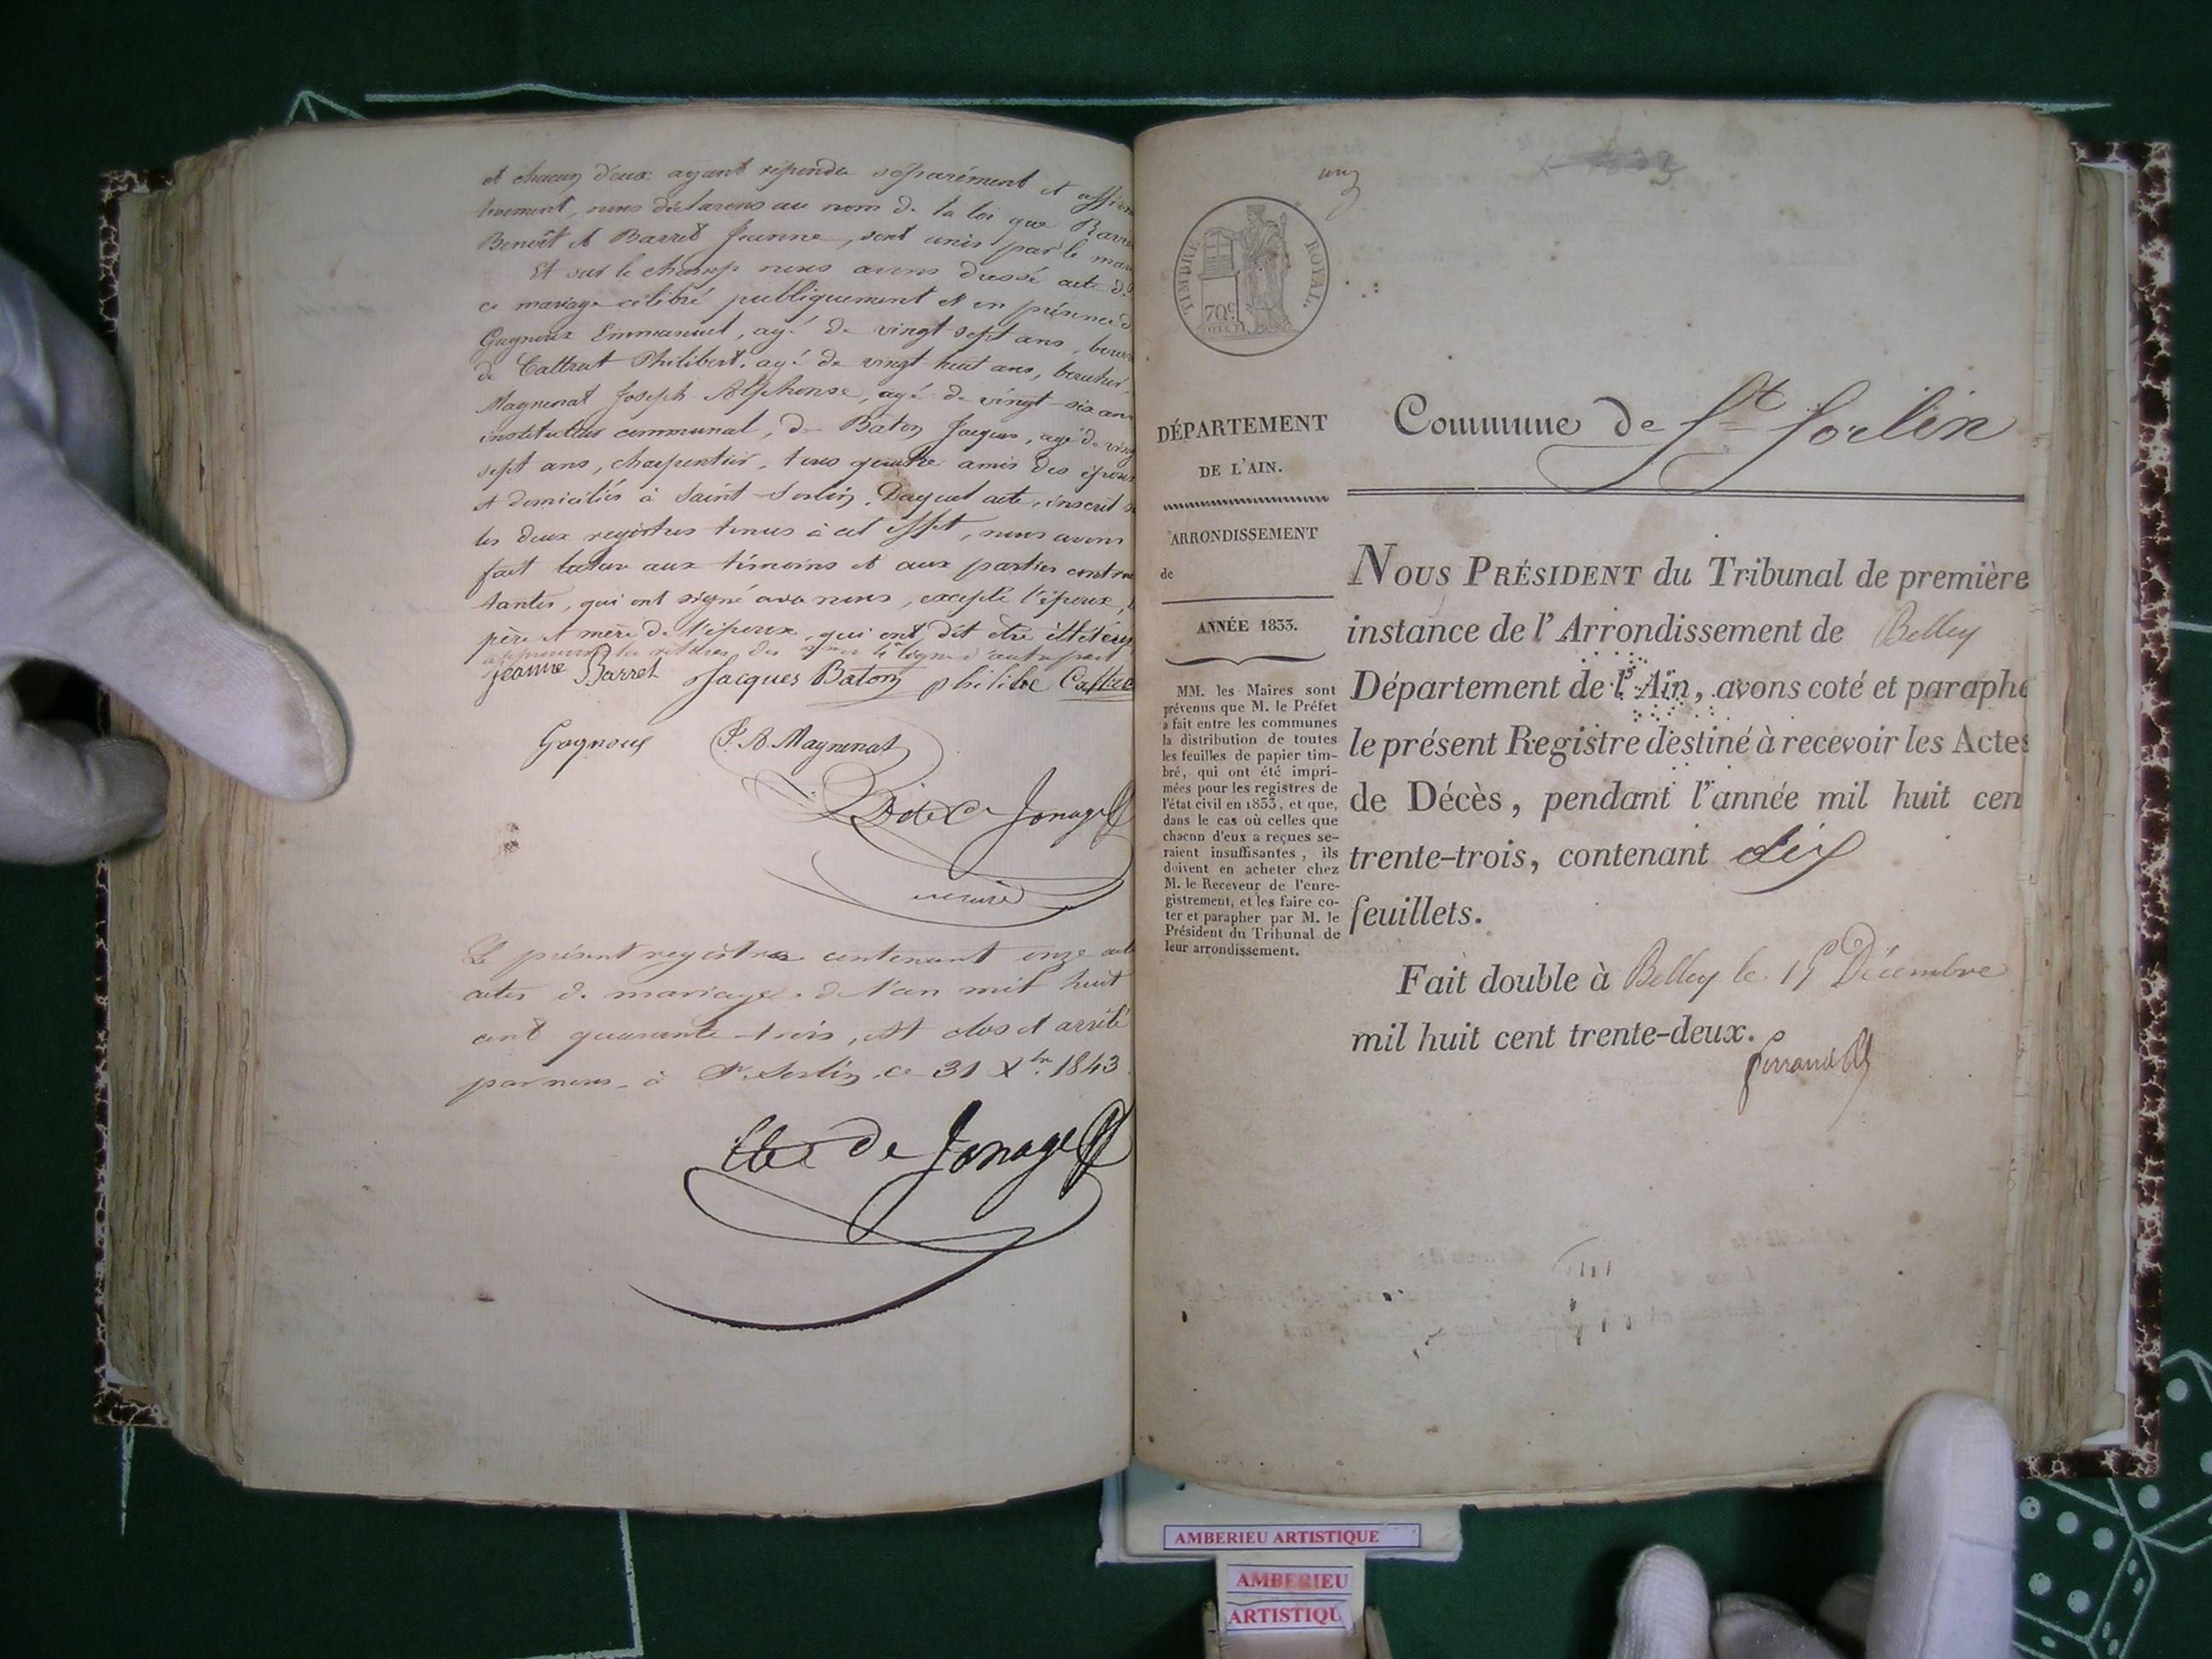 et chacun d'eux ayant répondu séparément et affirm
tivement, nous déclarons au nom de la loi que Ravi
Benoît et Barret Jeanne, sont unis par le mar
Et sur le champ nous avons dressé acte de
ce mariage célébré publiquement et en présence d
Gagneux Emmanuel, agé de vingt sept ans,
de Cattrat Philibert, agé de vingt huit ans, boucher
Magnenat Joseph Alphonse, agé de vingt-six ans
instituteur communal, de Baton Jacques, agé de ving
sept ans, charpentier, tous quatre amis des époux
et domiciliés à Saint-Sorlin. Duquel acte, inscrit s
les deux registres tenus à cet effet, nous avons
fait lecture aux témoins et aux parties contrac
tantes, qui ont signé avec nous, excepté l'époux,
père et mère de l'époux, qui ont dit être illétérés
Jeanne Barret Jacques Baton philibe Cattra
Gagneux J. A. Magnenat
de Jonage
maire
Le présent registre contenant onze
actes de mariages de l'an mil huit
cent quarante-trois, est clos et arrêté
par nous à St Sorlin ce 31 Xbre 1843
de Jonage
un
TIMBRE ROYAL.
70c
DÉPARTEMENT
DE L'AIN.
ARRONDISSEMENT
de
ANNÉE 1833.
MM. les Maires sont
prévenus que M. le Préfet
a fait entre les communes
la distribution de toutes
les feuilles de papier tim-
bré, qui ont été impri-
mées pour les registres de
l'état civil en 1833, et que,
dans le cas où celles que
chacun d'eux a reçues se-
raient insuffisantes, ils
doivent en acheter chez
M. le Receveur de l'enre-
gistrement, et les faire co-
ter et parapher par M. le
Président du Tribunal de
leur arrondissement.
Commune de St Sorlin
NOUS PRÉSIDENT du Tribunal de première
instance de l'Arrondissement de Belley
Département de l'Ain, avons coté et paraphé
le présent Registre destiné à recevoir les Actes
de Décès, pendant l'année mil huit cen
trente-trois, contenant dix
feuillets.
Fait double à Belley le 15 Décembre
mil huit cent trente-deux.
AMBERIEU ARTISTIQUE
AMBERIEU
ARTISTIQU